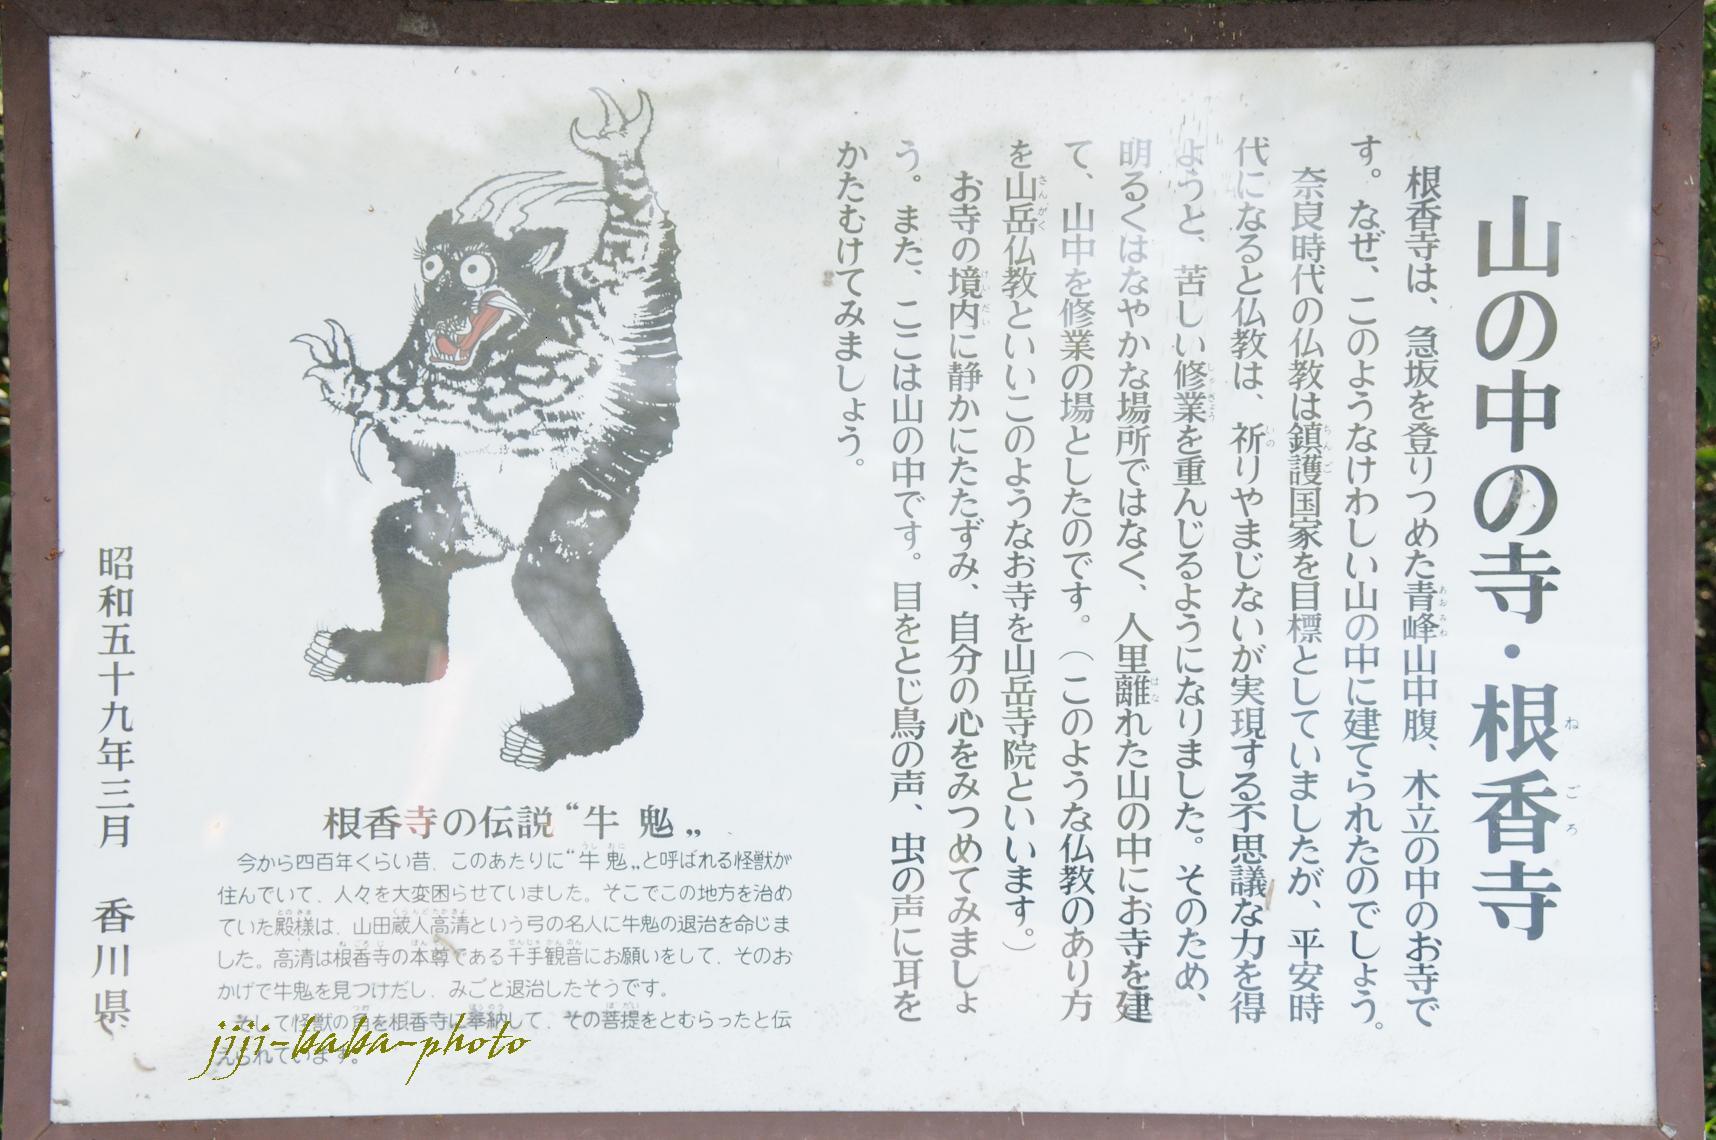 山の中の寺・根香寺
根香寺は、急坂を登りつめた青峰山中腹、木立の中のお寺で
す。なぜ、このようなけわしい山の中に建てられたのでしょう。
奈良時代の仏教は鎮護国家を目標としていましたが、平安時
代になると仏教は、祈りやまじないが実現する不思議な力を得
ようと、苦しい修業を重んじるようになりました。そのため、
明るくはなやかな場所ではなく、人里離れた山の中にお寺を建
て、山中を修業の場としたのです。（このような仏教のあり方
を山岳仏教といいこのようなお寺を山岳寺院といいます。）
お寺の境内に静かにたたずみ、自分の心をみつめてみましょ
う。また、ここは山の中です。目をとじ鳥の声、虫の声に耳を
かたむけてみましょう。
根香寺の伝説“牛鬼„
今から四百年くらい昔、このあたりに“牛鬼„と呼ばれる怪獣が
住んでいて、人々を大変困らせていました。そこでこの地方を治め
ていた殿様は、山田蔵人高清という弓の名人に牛鬼の退治を命じま
した。高清は根香寺の本尊である千手観音にお願いをして、そのお
かげで牛鬼を見つけだし、みごと退治したそうです。
そして怪獣の角を根香寺に奉納して、その菩提をとむらったと伝
えられています。
昭和五十九年三月　香川県
jiji-baba-photo